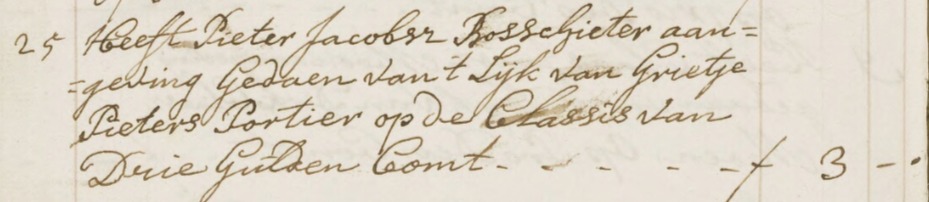 25 Heeft Pieter Jacobsz Bosschieter aan=
=geving Gedaen van 't Lijk van Grietje
Pieters Portier op de Classis van
Drie Gulden Comt - - - - - f 3 - .